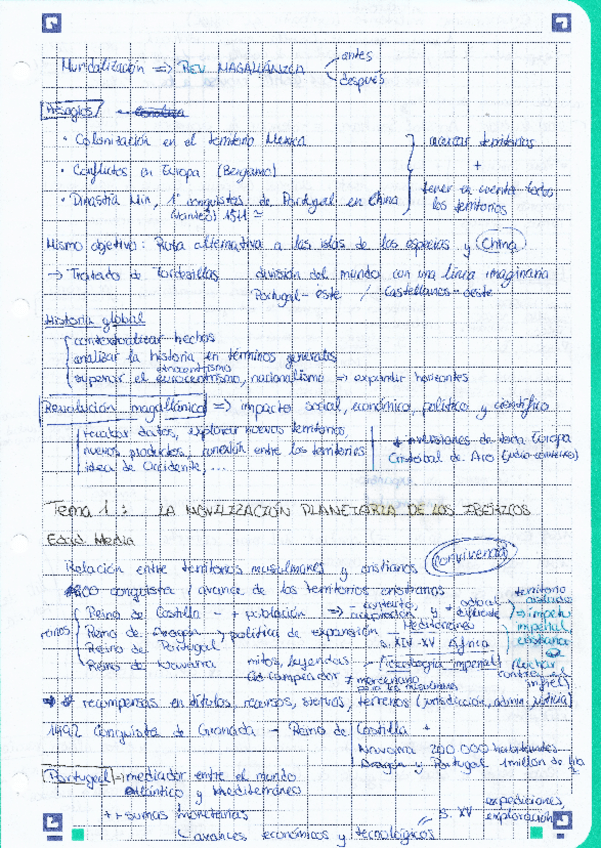 Mundialización => REV. MAGALLÁNICA
antes
después
Presagios
· Colonización en el territorio Mexica
· Conflictos en Europa (Bérgamo)
· Dinastía Min, 1ª conquistas de Portugal en China
1511 ≈
acercar territorios
+
tener en cuenta todos
los territorios
Mismo objetivo: Ruta alternativa a las islas de las especias y China
→ Tratado de Tordesillas división del mundo con una línea imaginaria
Portugal - este / castellanos - oeste
Historia global
contextualizar hechos
analizar la historia en términos generales
etnocentrismo
superar el eurocentrismo, nacionalismo => expandir horizontes
Revolución magallánica => impacto social, económico, político y científico
recabar datos, explorar nuevos territorios,
nuevos productos, conexión entre los territorios
idea de Occidente, ...
+ inversiones de toda Europa
Cristobal de Aro (judio-converso)
Tema 1: LA MOVILIZACIÓN PLANETARIA DE LOS IBÉRICOS
Edad Media
Relación entre territorios musulmanes y cristianos
convivencia
conquista / avance de los territorios cristianos
reinos
Reino de Castilla - + población =>
Reino de Aragón -> política de expansión Mediterráneo
Reino de Portugal s. XIV-XV África
Reino de Navarra mitos, leyendas - (ideología imperial)
Cid campeador ≠ mercenario
territorio
=> ímpetu
imperial
cristiano
luchar
contra el
infiel
recompensas en títulos, recursos, terrenos (jurisdicción, admin, justicia)
1992 Conquista de Granada - Reino de Castilla +
Navarra 200 000 habitantes
Aragón y Portugal 1 millón de
Portugal -> mediador entre el mundo
atlántico y Mediterráneo
++ sumas monetarias
avances económicos y tecnológicos
s. XV expediciones,
exploración